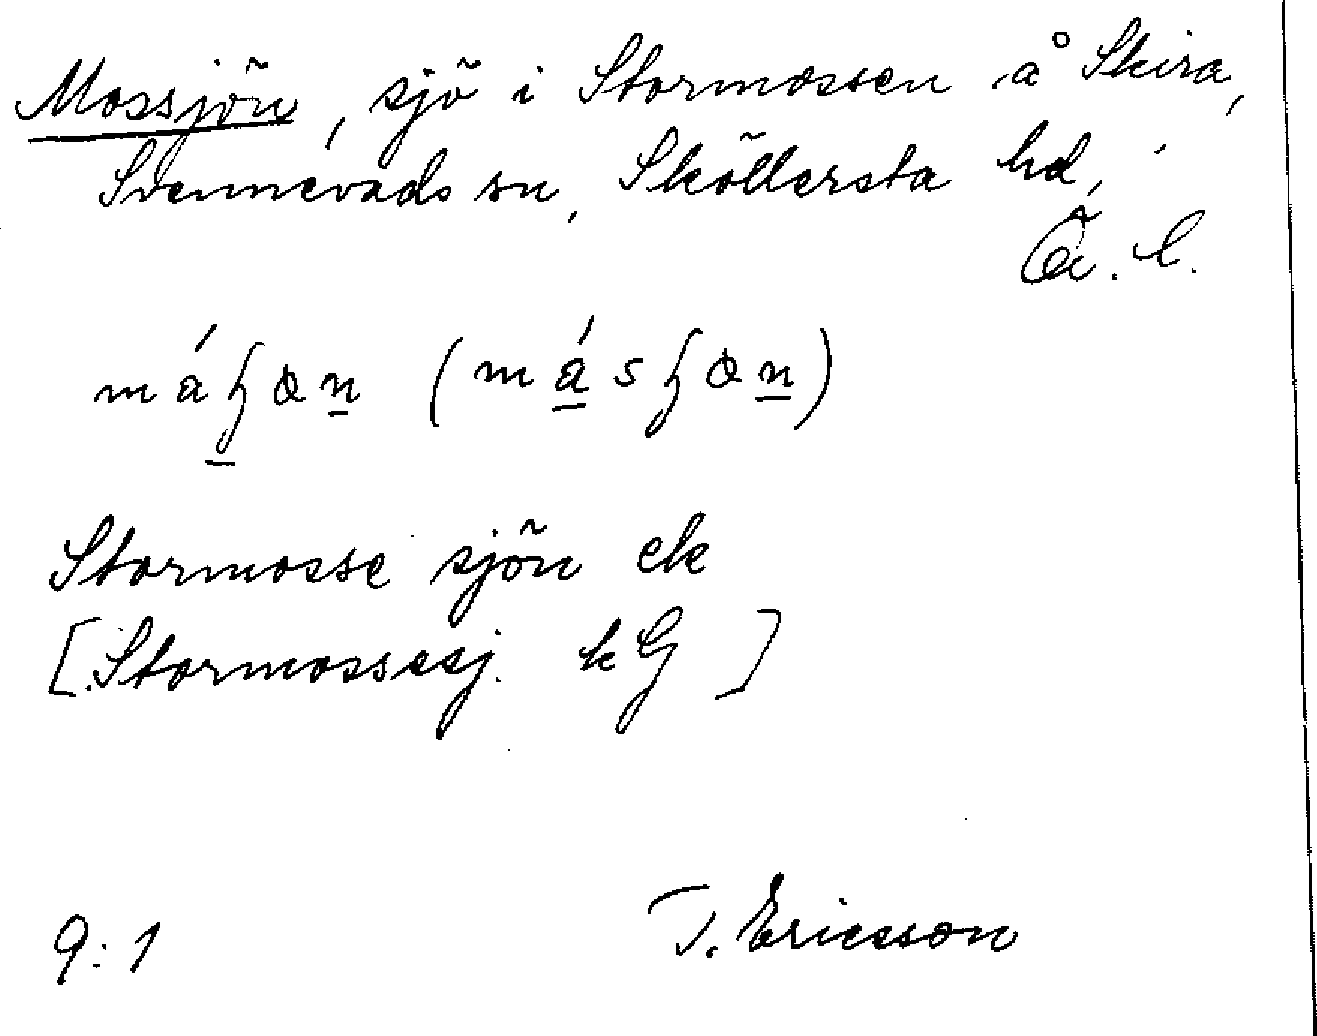 Mossjön, sjö i Stormossen å Skira,
Svennevads sn, Sköllersta hd,
Ö. l.
Stormosse sjön ek
[Stormossesj. kG]
9:1 J. Ericsson